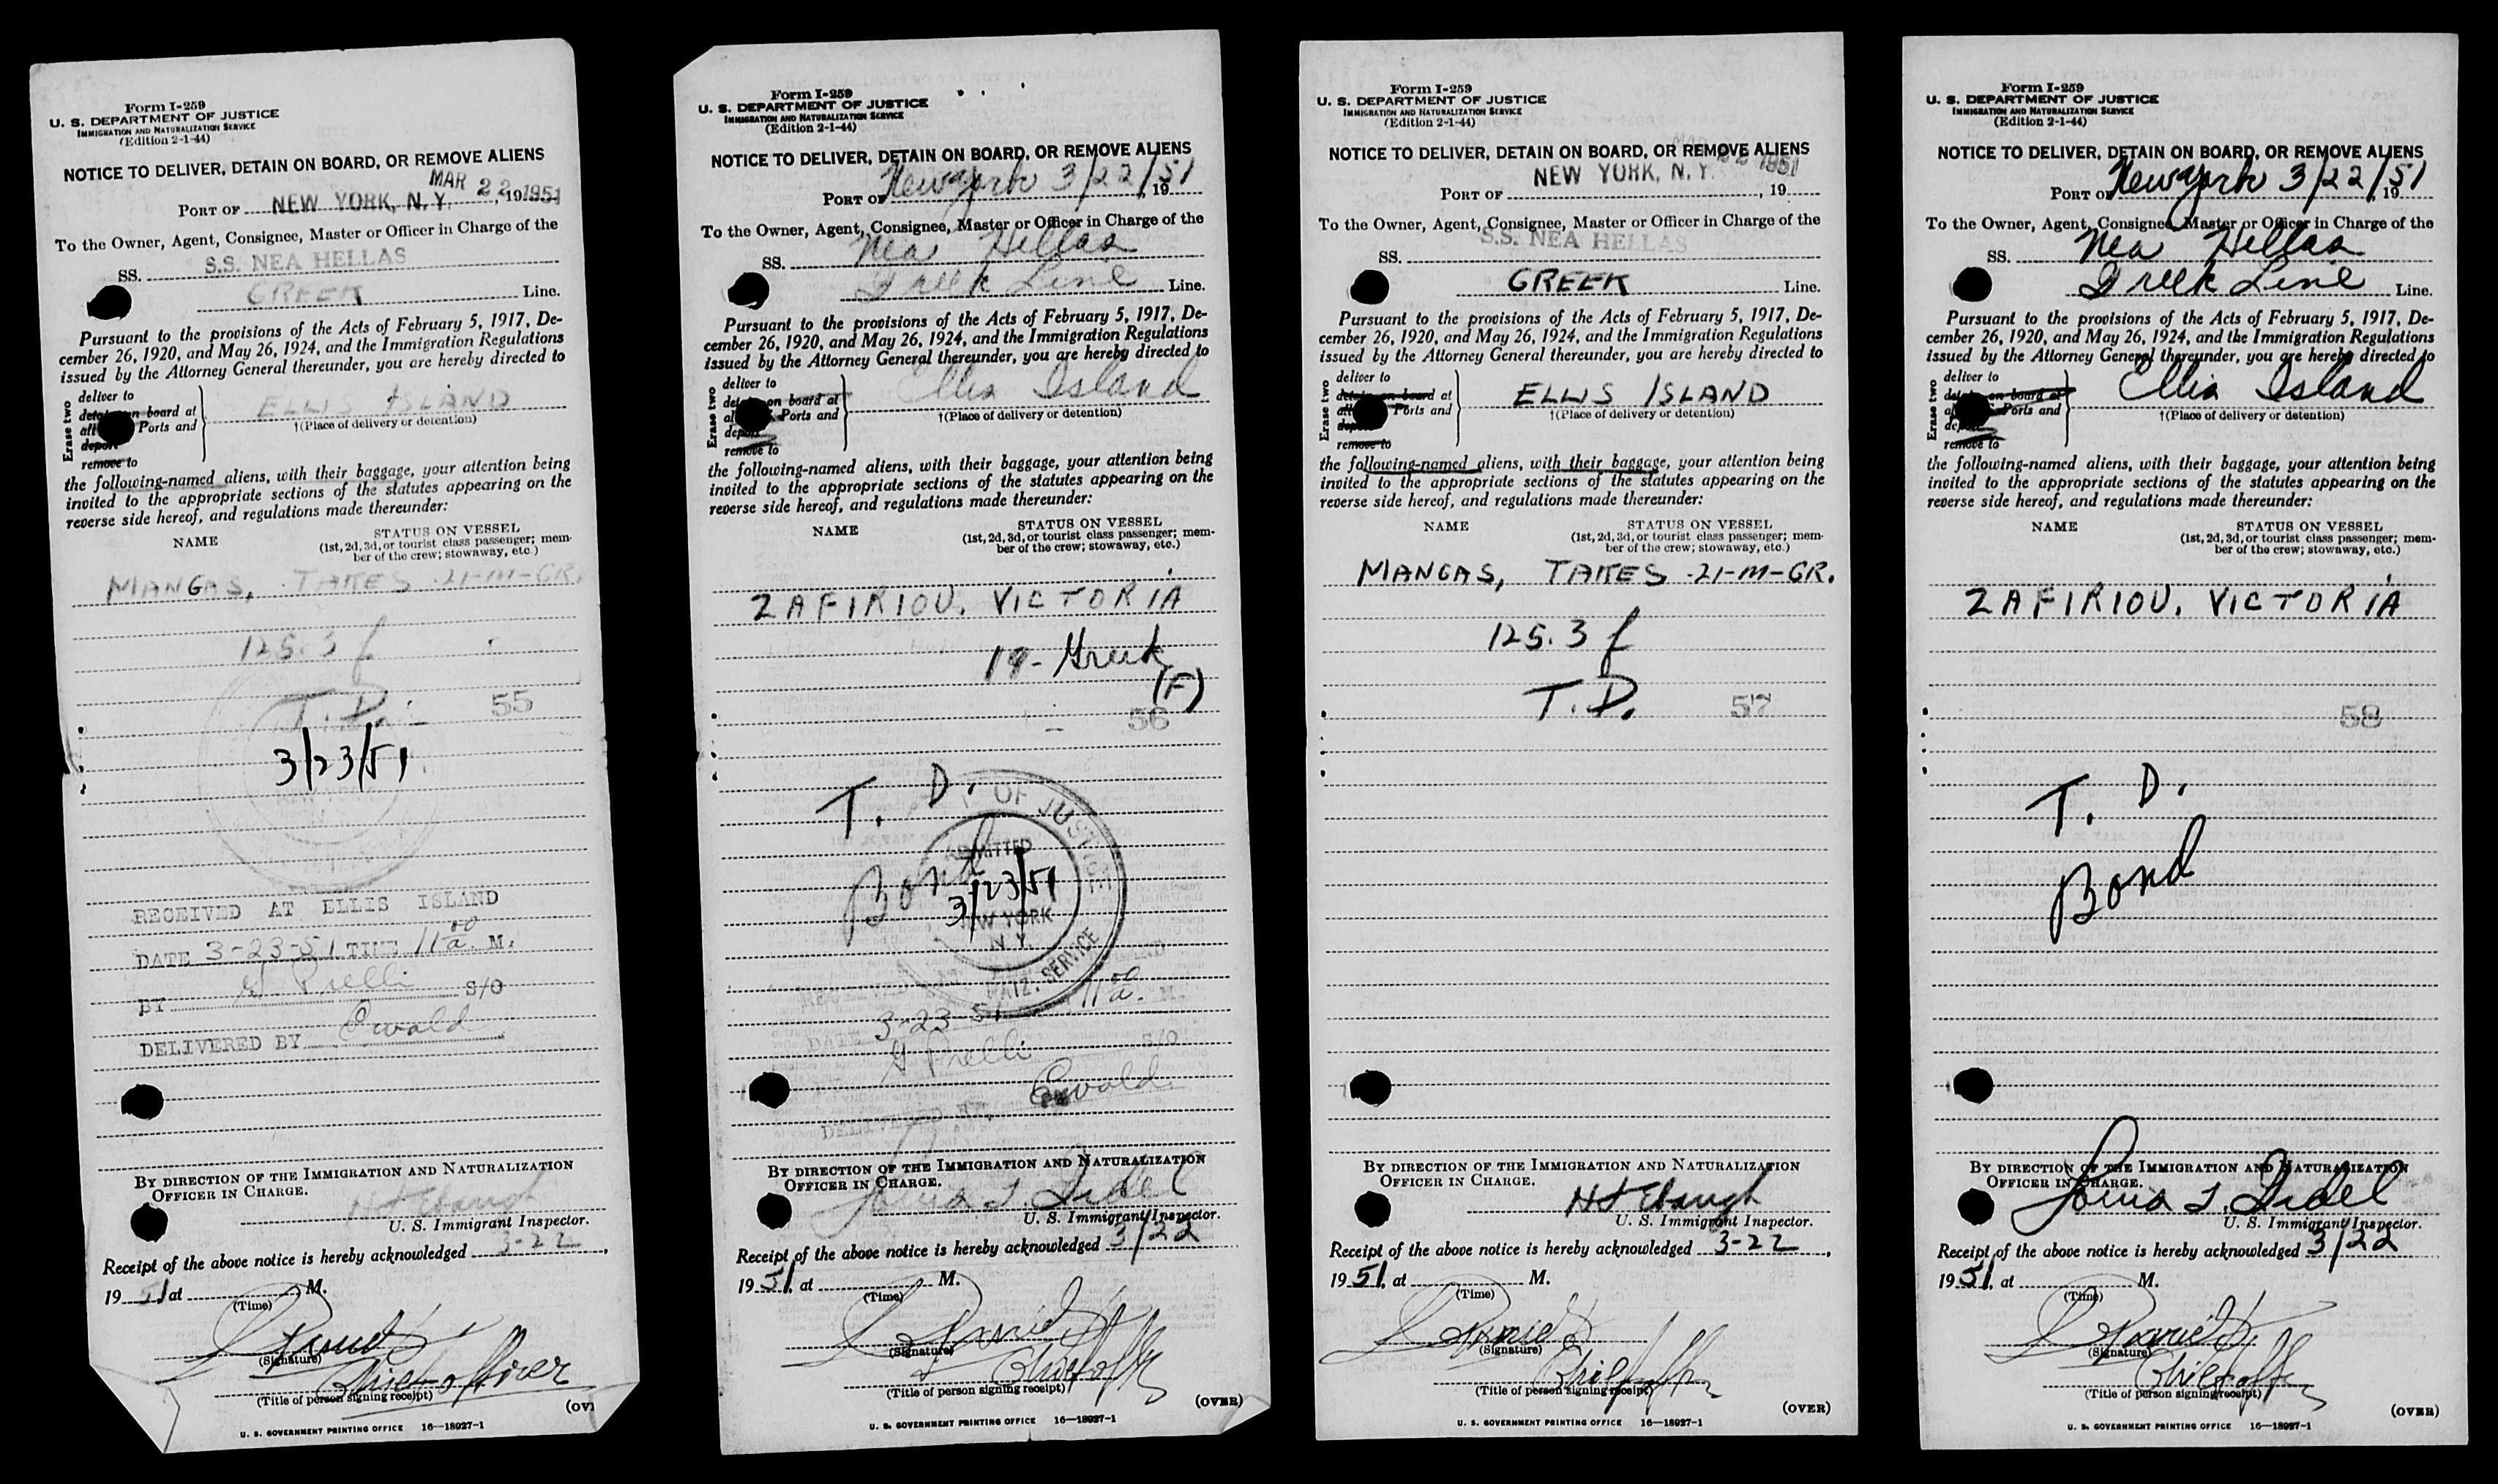 Form I-259
U. S. DEPARTMENT OF JUSTICE
IMMIGRATION AND NATURALIZATION SERVICE
(Edition 2-1-44)
NOTICE TO DELIVER, DETAIN ON BOARD, OR REMOVE ALIENS
MAR 22 1951
PORT OF NEW YORK, N.Y. , 19
To the Owner, Agent, Consignee, Master or Officer in Charge of the
SS. S.S. NEA HELLAS
GREEK Line.
Pursuant to the provisions of the Acts of February 5, 1917, De-
cember 26, 1920, and May 26, 1924, and the Immigration Regulations
issued by the Attorney General thereunder, you are hereby directed to
Erase two
deliver to
detain on board at
all Ports and
deport
remove to
ELLIS ISLAND
†(Place of delivery or detention)
the following-named aliens, with their baggage, your attention being
invited to the appropriate sections of the statutes appearing on the
reverse side hereof, and regulations made thereunder:
NAME STATUS ON VESSEL
(1st, 2d, 3d, or tourist class passenger; mem-
ber of the crew; stowaway, etc.)
MANGAS, TAKES -21-M-GR.
125.3 f
T.D. 55
3/23/51
RECEIVED AT ELLIS ISLAND
DATE 3-23-51 TIME 11 00 a. M.
BY Prelli S/O
DELIVERED BY Ewald
BY DIRECTION OF THE IMMIGRATION AND NATURALIZATION
OFFICER IN CHARGE.
U. S. Immigrant Inspector.
Receipt of the above notice is hereby acknowledged 3-22,
19 51 at M.
(Time)
(Signature)
Chief officer
(Title of person signing receipt)
(OV
U. S. GOVERNMENT PRINTING OFFICE 16—18927-1
Form I-259
U. S. DEPARTMENT OF JUSTICE
IMMIGRATION AND NATURALIZATION SERVICE
(Edition 2-1-44)
NOTICE TO DELIVER, DETAIN ON BOARD, OR REMOVE ALIENS
PORT OF New York 3/22/51, 19
To the Owner, Agent, Consignee, Master or Officer in Charge of the
SS. Nea Hellas
Greek Line Line.
Pursuant to the provisions of the Acts of February 5, 1917, De-
cember 26, 1920, and May 26, 1924, and the Immigration Regulations
issued by the Attorney General thereunder, you are hereby directed to
Erase two
deliver to
detain on board at
all Ports and
deport
remove to
Ellis Island
†(Place of delivery or detention)
the following-named aliens, with their baggage, your attention being
invited to the appropriate sections of the statutes appearing on the
reverse side hereof, and regulations made thereunder:
NAME STATUS ON VESSEL
(1st, 2d, 3d, or tourist class passenger; mem-
ber of the crew; stowaway, etc.)
ZAFIRIOU, VICTORIA
19- Greek
(F)
56
T. D.
OF JUSTICE
ADMITTED
Bond
3/23/51
NEW YORK
N.Y.
NATZ. SERVICE
DATE 3-23-51 11 00 a. M.
Prelli S/O
DELIVERED BY Ewald
BY DIRECTION OF THE IMMIGRATION AND NATURALIZATION
OFFICER IN CHARGE.
U. S. Immigrant Inspector.
Receipt of the above notice is hereby acknowledged 3/22
19 51, at M.
(Time)
(Signature)
(Title of person signing receipt)
(OVER)
U. S. GOVERNMENT PRINTING OFFICE 16—18927-1
Form I-259
U. S. DEPARTMENT OF JUSTICE
IMMIGRATION AND NATURALIZATION SERVICE
(Edition 2-1-44)
NOTICE TO DELIVER, DETAIN ON BOARD, OR REMOVE ALIENS
MAR 22 1951
PORT OF NEW YORK, N.Y. , 19
To the Owner, Agent, Consignee, Master or Officer in Charge of the
SS. S.S. NEA HELLAS
GREEK Line.
Pursuant to the provisions of the Acts of February 5, 1917, De-
cember 26, 1920, and May 26, 1924, and the Immigration Regulations
issued by the Attorney General thereunder, you are hereby directed to
Erase two
deliver to
detain on board at
all Ports and
deport
remove to
ELLIS ISLAND
†(Place of delivery or detention)
the following-named aliens, with their baggage, your attention being
invited to the appropriate sections of the statutes appearing on the
reverse side hereof, and regulations made thereunder:
NAME STATUS ON VESSEL
(1st, 2d, 3d, or tourist class passenger; mem-
ber of the crew; stowaway, etc.)
MANGAS, TAKES -21-M-GR.
125.3 f
T.D. 57
BY DIRECTION OF THE IMMIGRATION AND NATURALIZATION
OFFICER IN CHARGE.
U. S. Immigrant Inspector.
Receipt of the above notice is hereby acknowledged 3-22,
19 51, at M.
(Time)
(Signature)
(Title of person signing receipt)
(OVER)
U. S. GOVERNMENT PRINTING OFFICE 16—18927-1
Form I-259
U. S. DEPARTMENT OF JUSTICE
IMMIGRATION AND NATURALIZATION SERVICE
(Edition 2-1-44)
NOTICE TO DELIVER, DETAIN ON BOARD, OR REMOVE ALIENS
PORT OF New York 3/22/51, 19
To the Owner, Agent, Consignee, Master or Officer in Charge of the
SS. Nea Hellas
Greek Line Line.
Pursuant to the provisions of the Acts of February 5, 1917, De-
cember 26, 1920, and May 26, 1924, and the Immigration Regulations
issued by the Attorney General thereunder, you are hereby directed to
Erase two
deliver to
detain on board at
all Ports and
deport
remove to
Ellis Island
†(Place of delivery or detention)
the following-named aliens, with their baggage, your attention being
invited to the appropriate sections of the statutes appearing on the
reverse side hereof, and regulations made thereunder:
NAME STATUS ON VESSEL
(1st, 2d, 3d, or tourist class passenger; mem-
ber of the crew; stowaway, etc.)
ZAFIRIOU, VICTORIA
58
T. D.
Bond
BY DIRECTION OF THE IMMIGRATION AND NATURALIZATION
OFFICER IN CHARGE.
U. S. Immigrant Inspector.
Receipt of the above notice is hereby acknowledged 3/22
19 51, at M.
(Time)
(Signature)
(Title of person signing receipt)
(OVER)
U. S. GOVERNMENT PRINTING OFFICE 16—18927-1